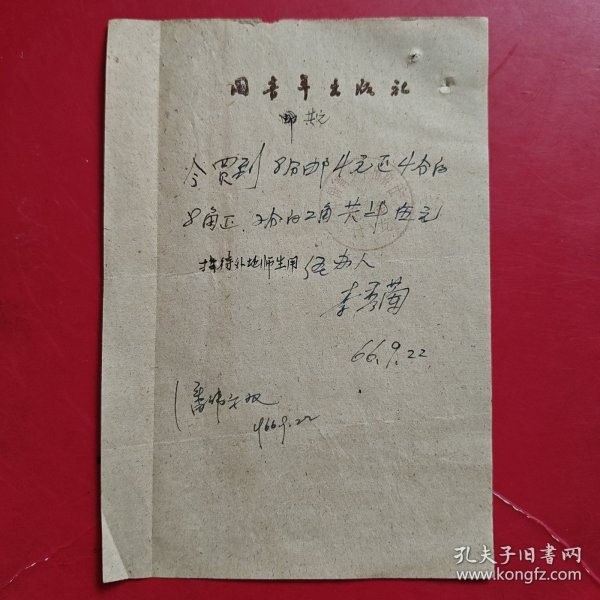 国青年出版社
今买到8分邮4元正4分的
8角正、2分的2角共计伍元
接待外地师生用 经办人
李秀兰
66.9.22
潘
1966.9.22
孔夫子旧书网
www.kongfz.com